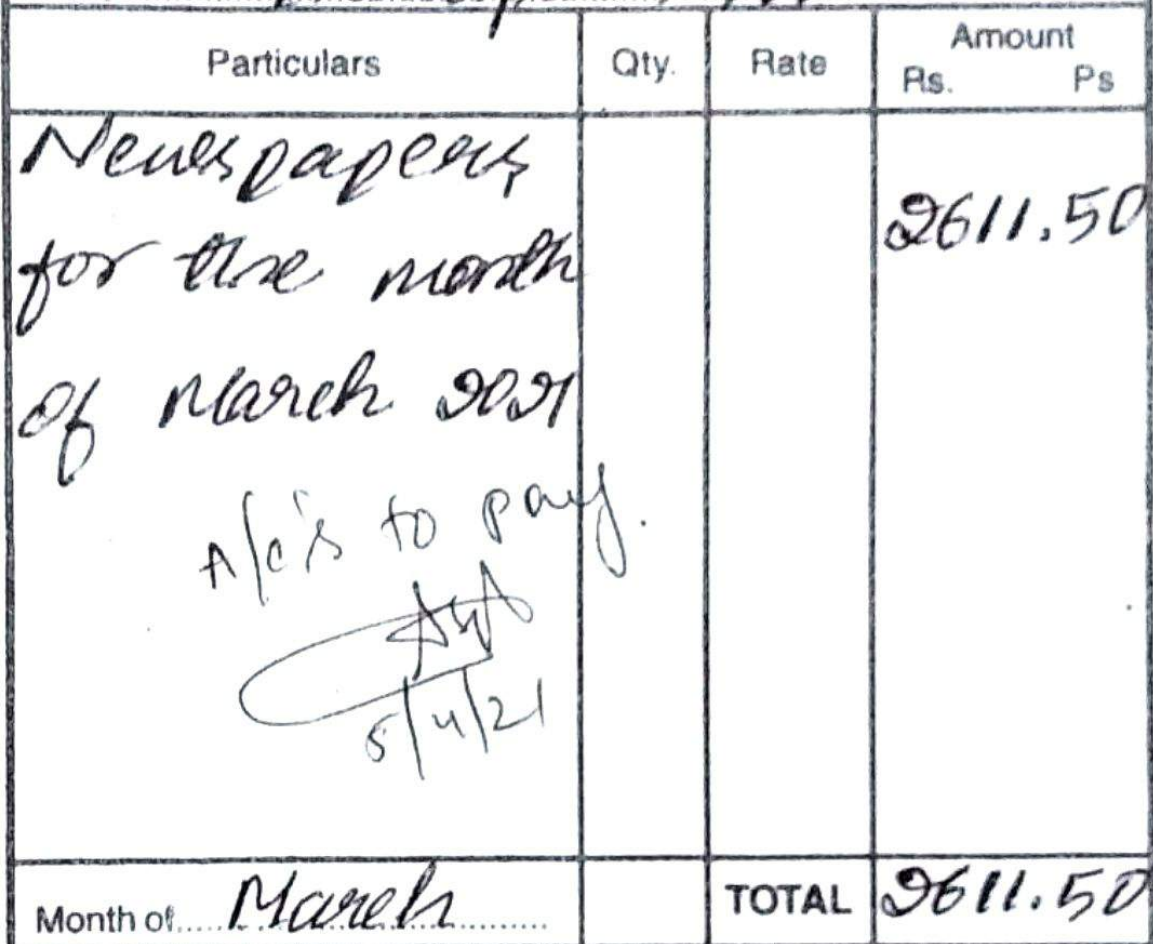 Particulars Qty. Rate Amount
Rs. Ps
Newspapers
2611.50
for the month
of March 2021
A/c's to pay.
5/4/21
Month of..... March ......... TOTAL 2611.50